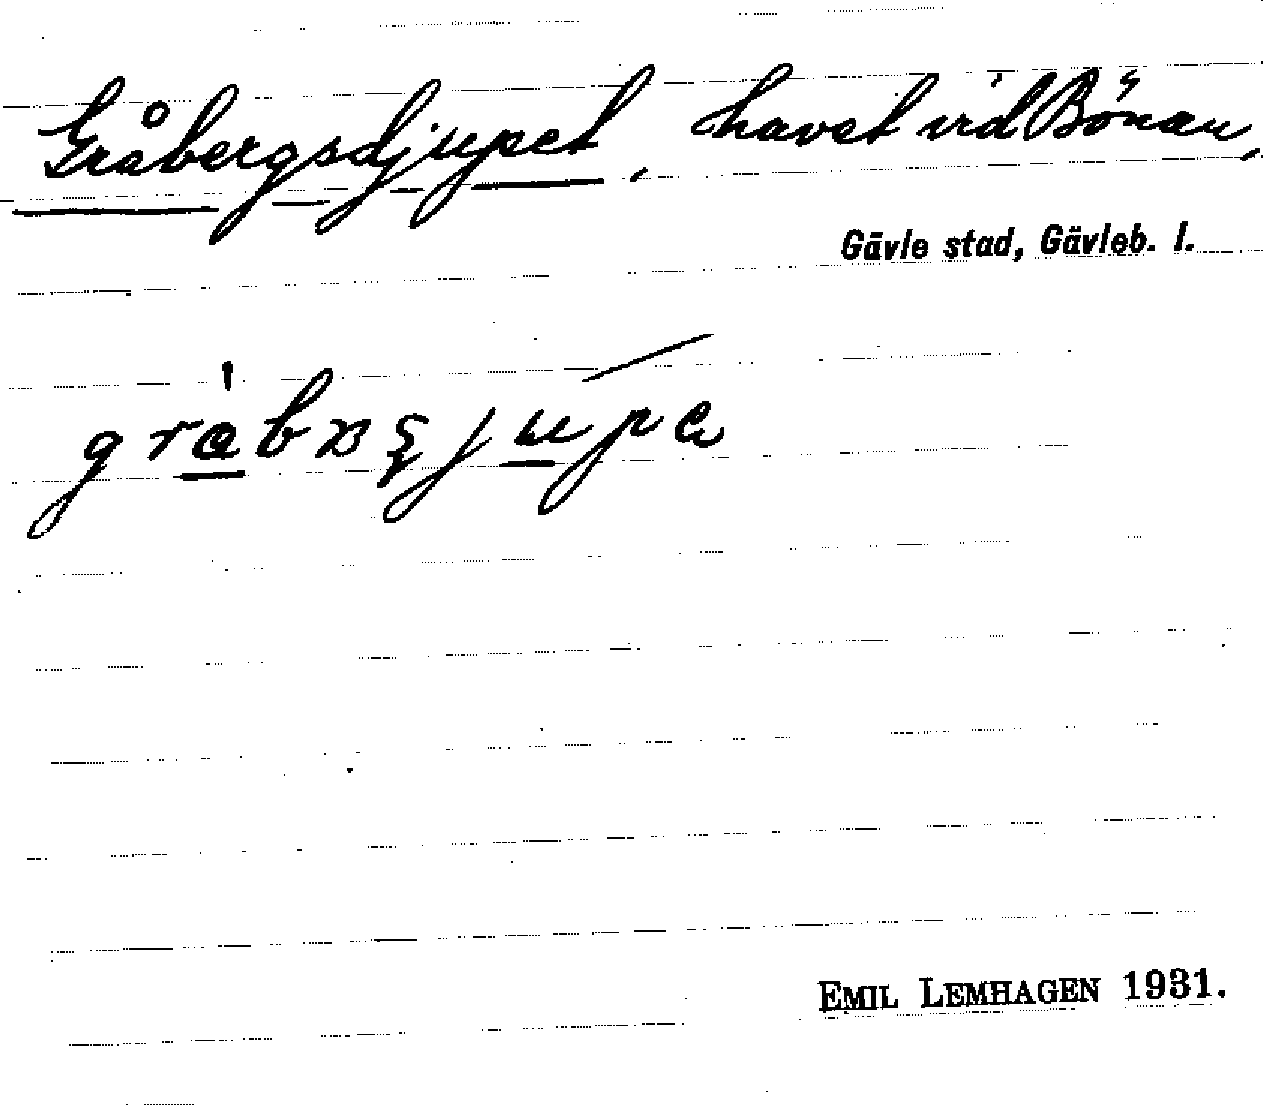 Gråbergsdjupet, havet vid Bönan,
Gävle stad, Gävleb. l.
EMIL LEMHAGEN 1931.